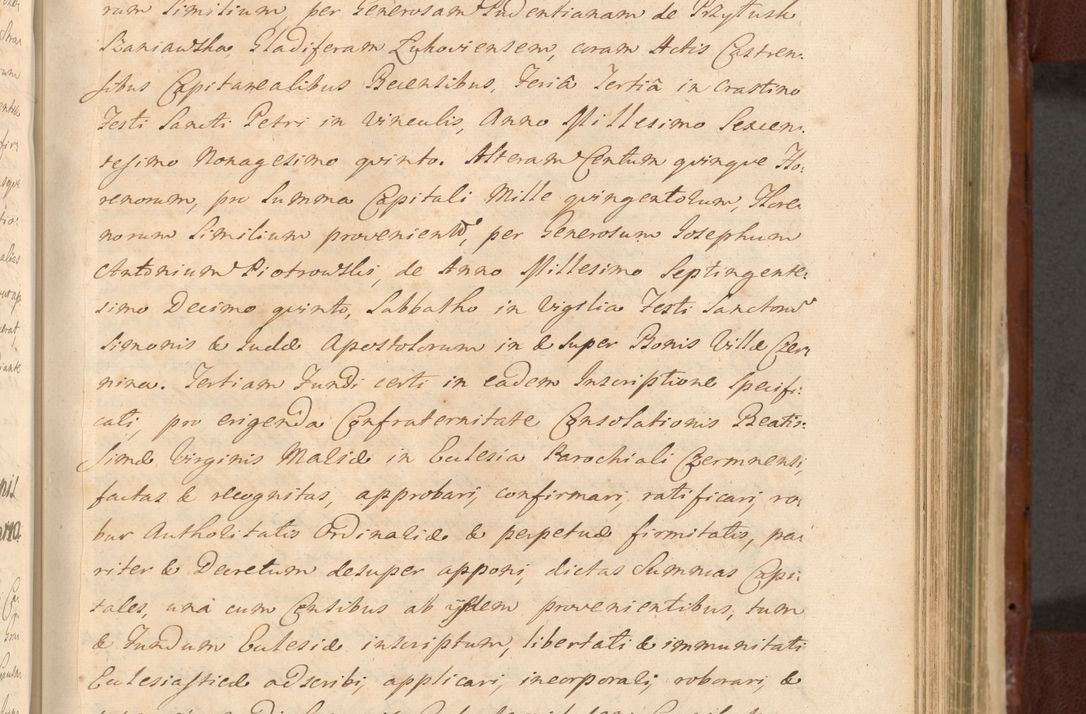 rum Similium, per Generosam Pudentianam de Przytusk
Szaniawska, Gladiferam Lukoviensem, coram Actis Castren:
sibus Capitanealibus Becensibus, Feriâ Tertiâ in Crastino
Festi Sancti Petri in Vinculis, Anno Millesimo Sexcen:
tesimo Nonagesimo quinto. Alteram Centum quinque Flo:
renorum, pro Summa Capitali Mille quingentorum, Flore:
norum Similium provenient, per Generosum Josephum
Antonium Piotrowski, de Anno Millesimo Septingente:
simo Decimo quinto, Sabbatho in Vigilia Festi Sanctorum
Simonis & Judæ Apostolorum in & super Bonis Villæ Czer:
mna. Tertiam Fundi certi in eadem Inscriptione Specifi:
cati, pro erigenda Confraternitate Consolationis Beatis:
simæ Virginis Mariæ in Ecclesia Parochiali Czermnensi,
factas & recognitas, approbari, confirmari, ratificari, ro:
bur Authoritatis Ordinariæ & perpetuæ firmitatis, pa:
riter & Decretum desuper apponi, dictas Summas Capi:
tales, una cum Censibus ab ijsdem provenientibus, tum
& Fundum Ecclesiæ inscriptum, libertati & immunitati
Ecclesiasticæ adscribi, applicari, incorporari, roborari, &